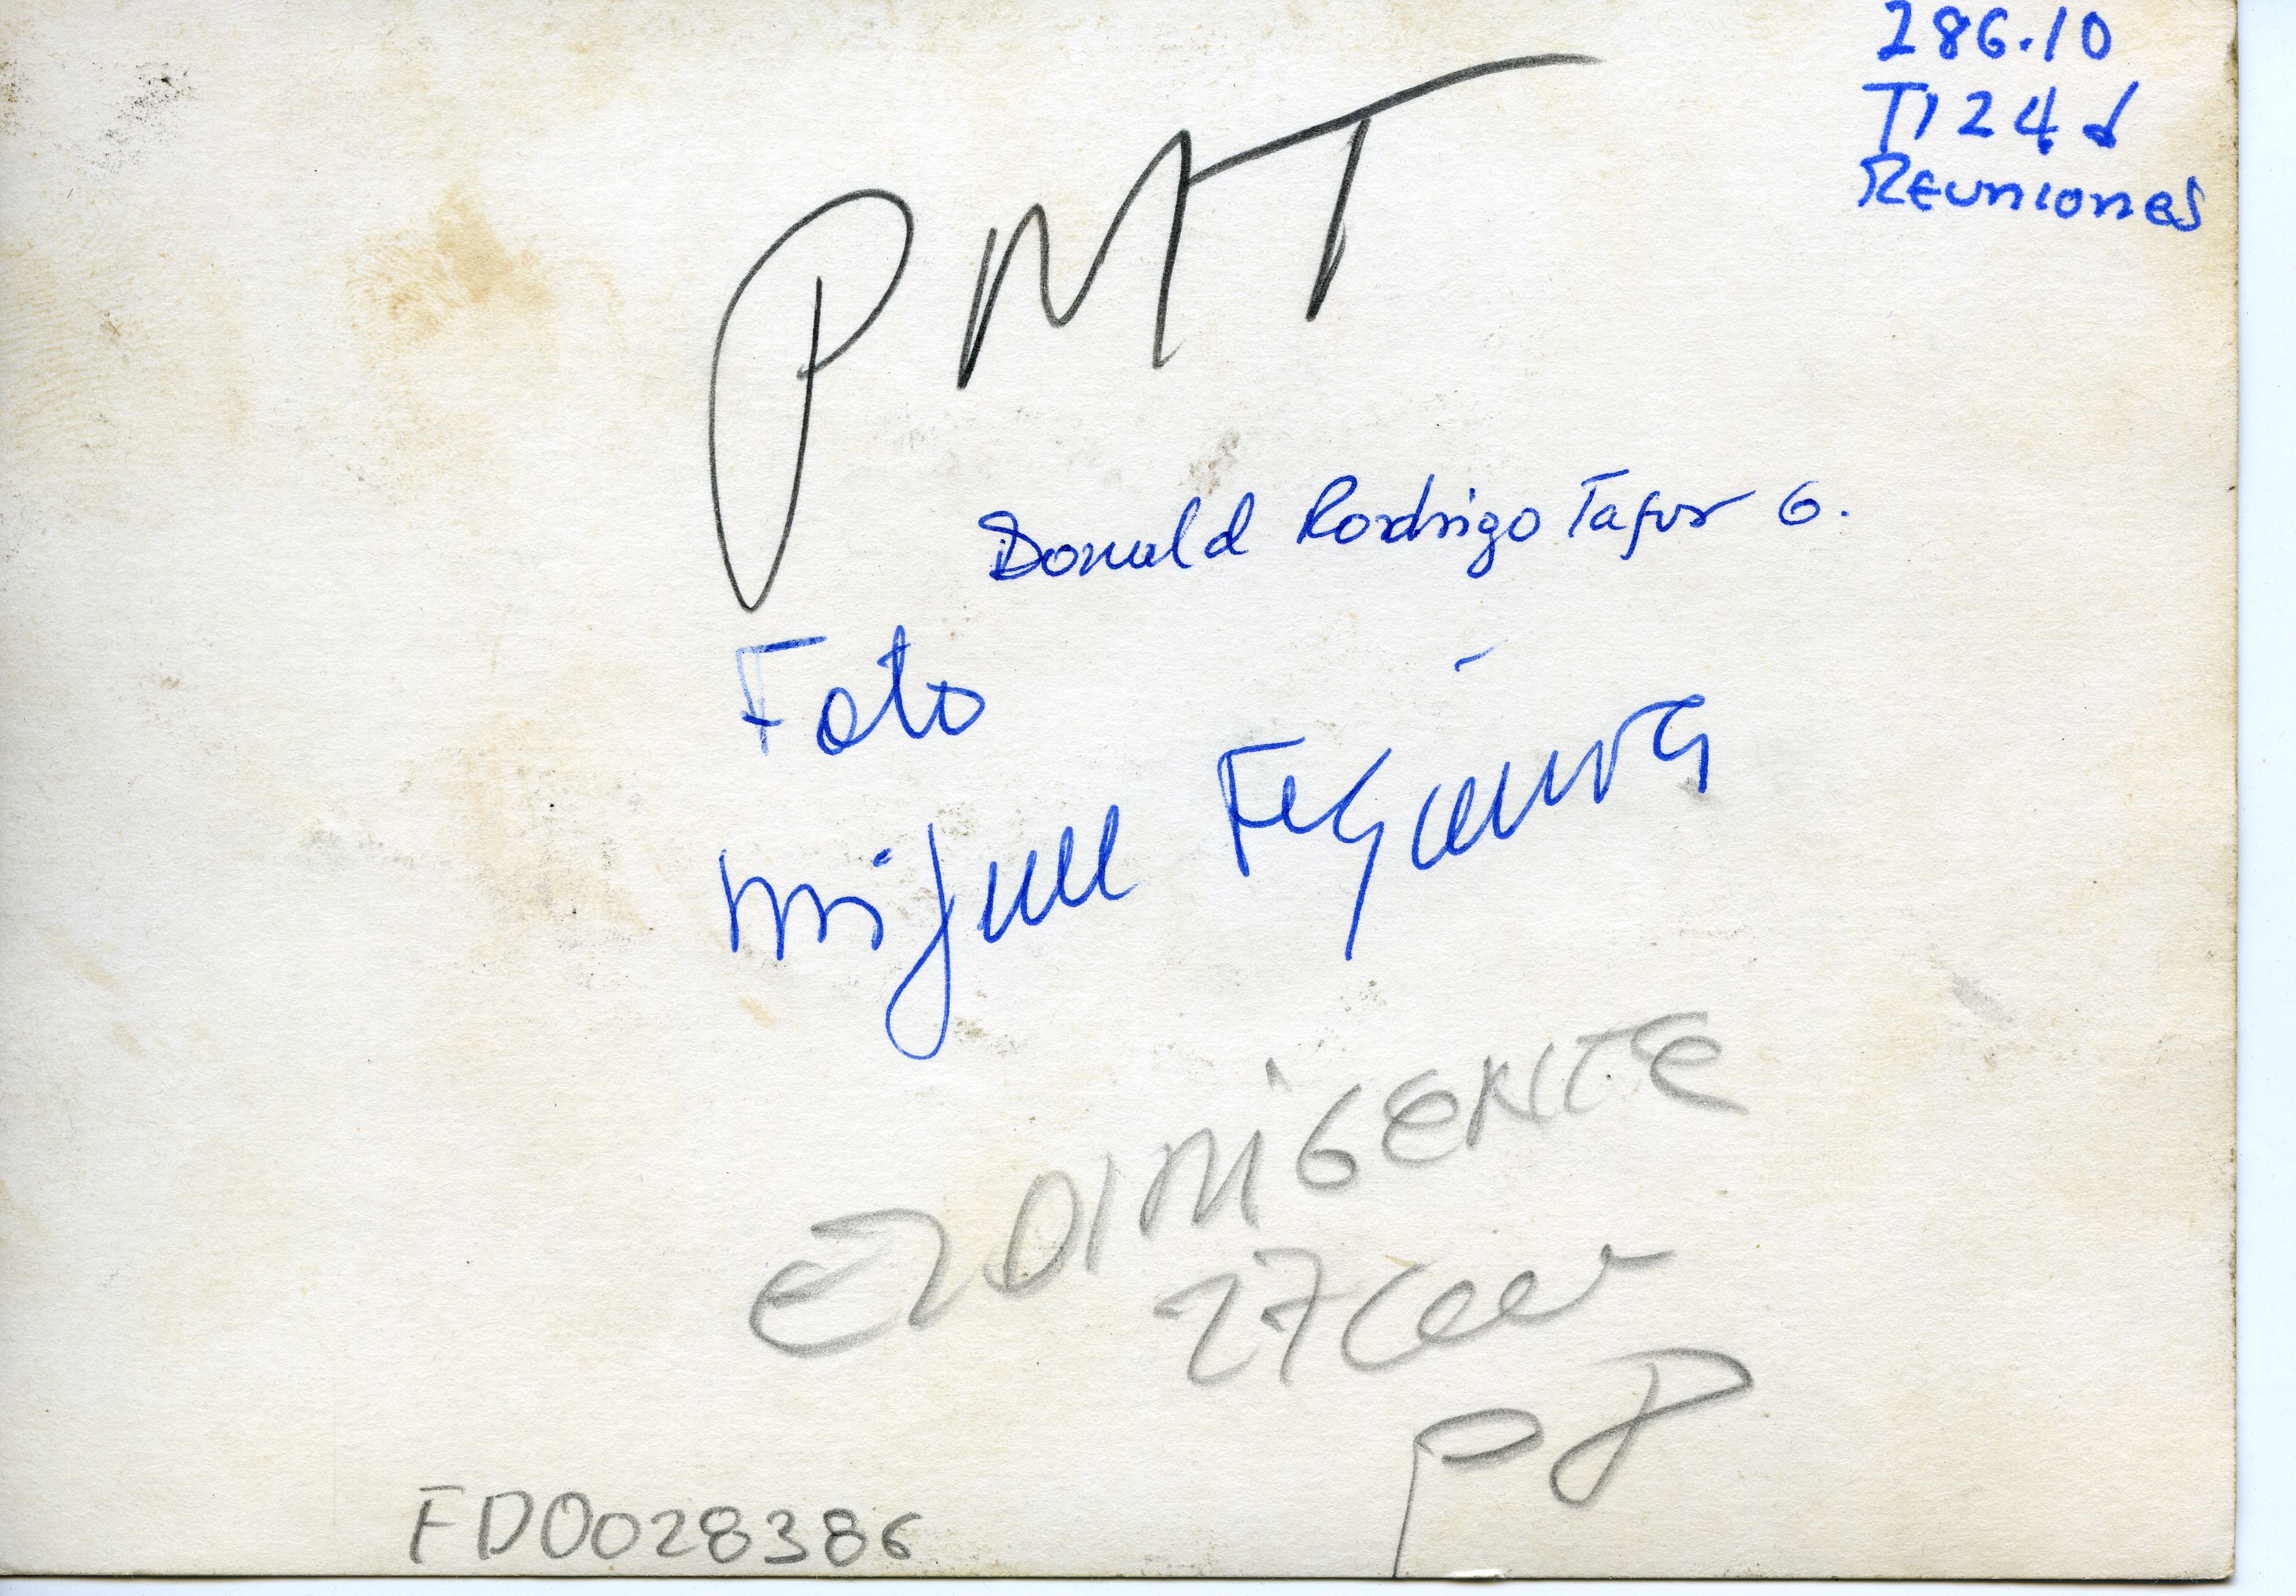 286.10
T124d
Reuniones
PMT
Donald Rodrigo Tafur G.
Foto
Miguel
EL DIRIGENTE
27
FD0028386